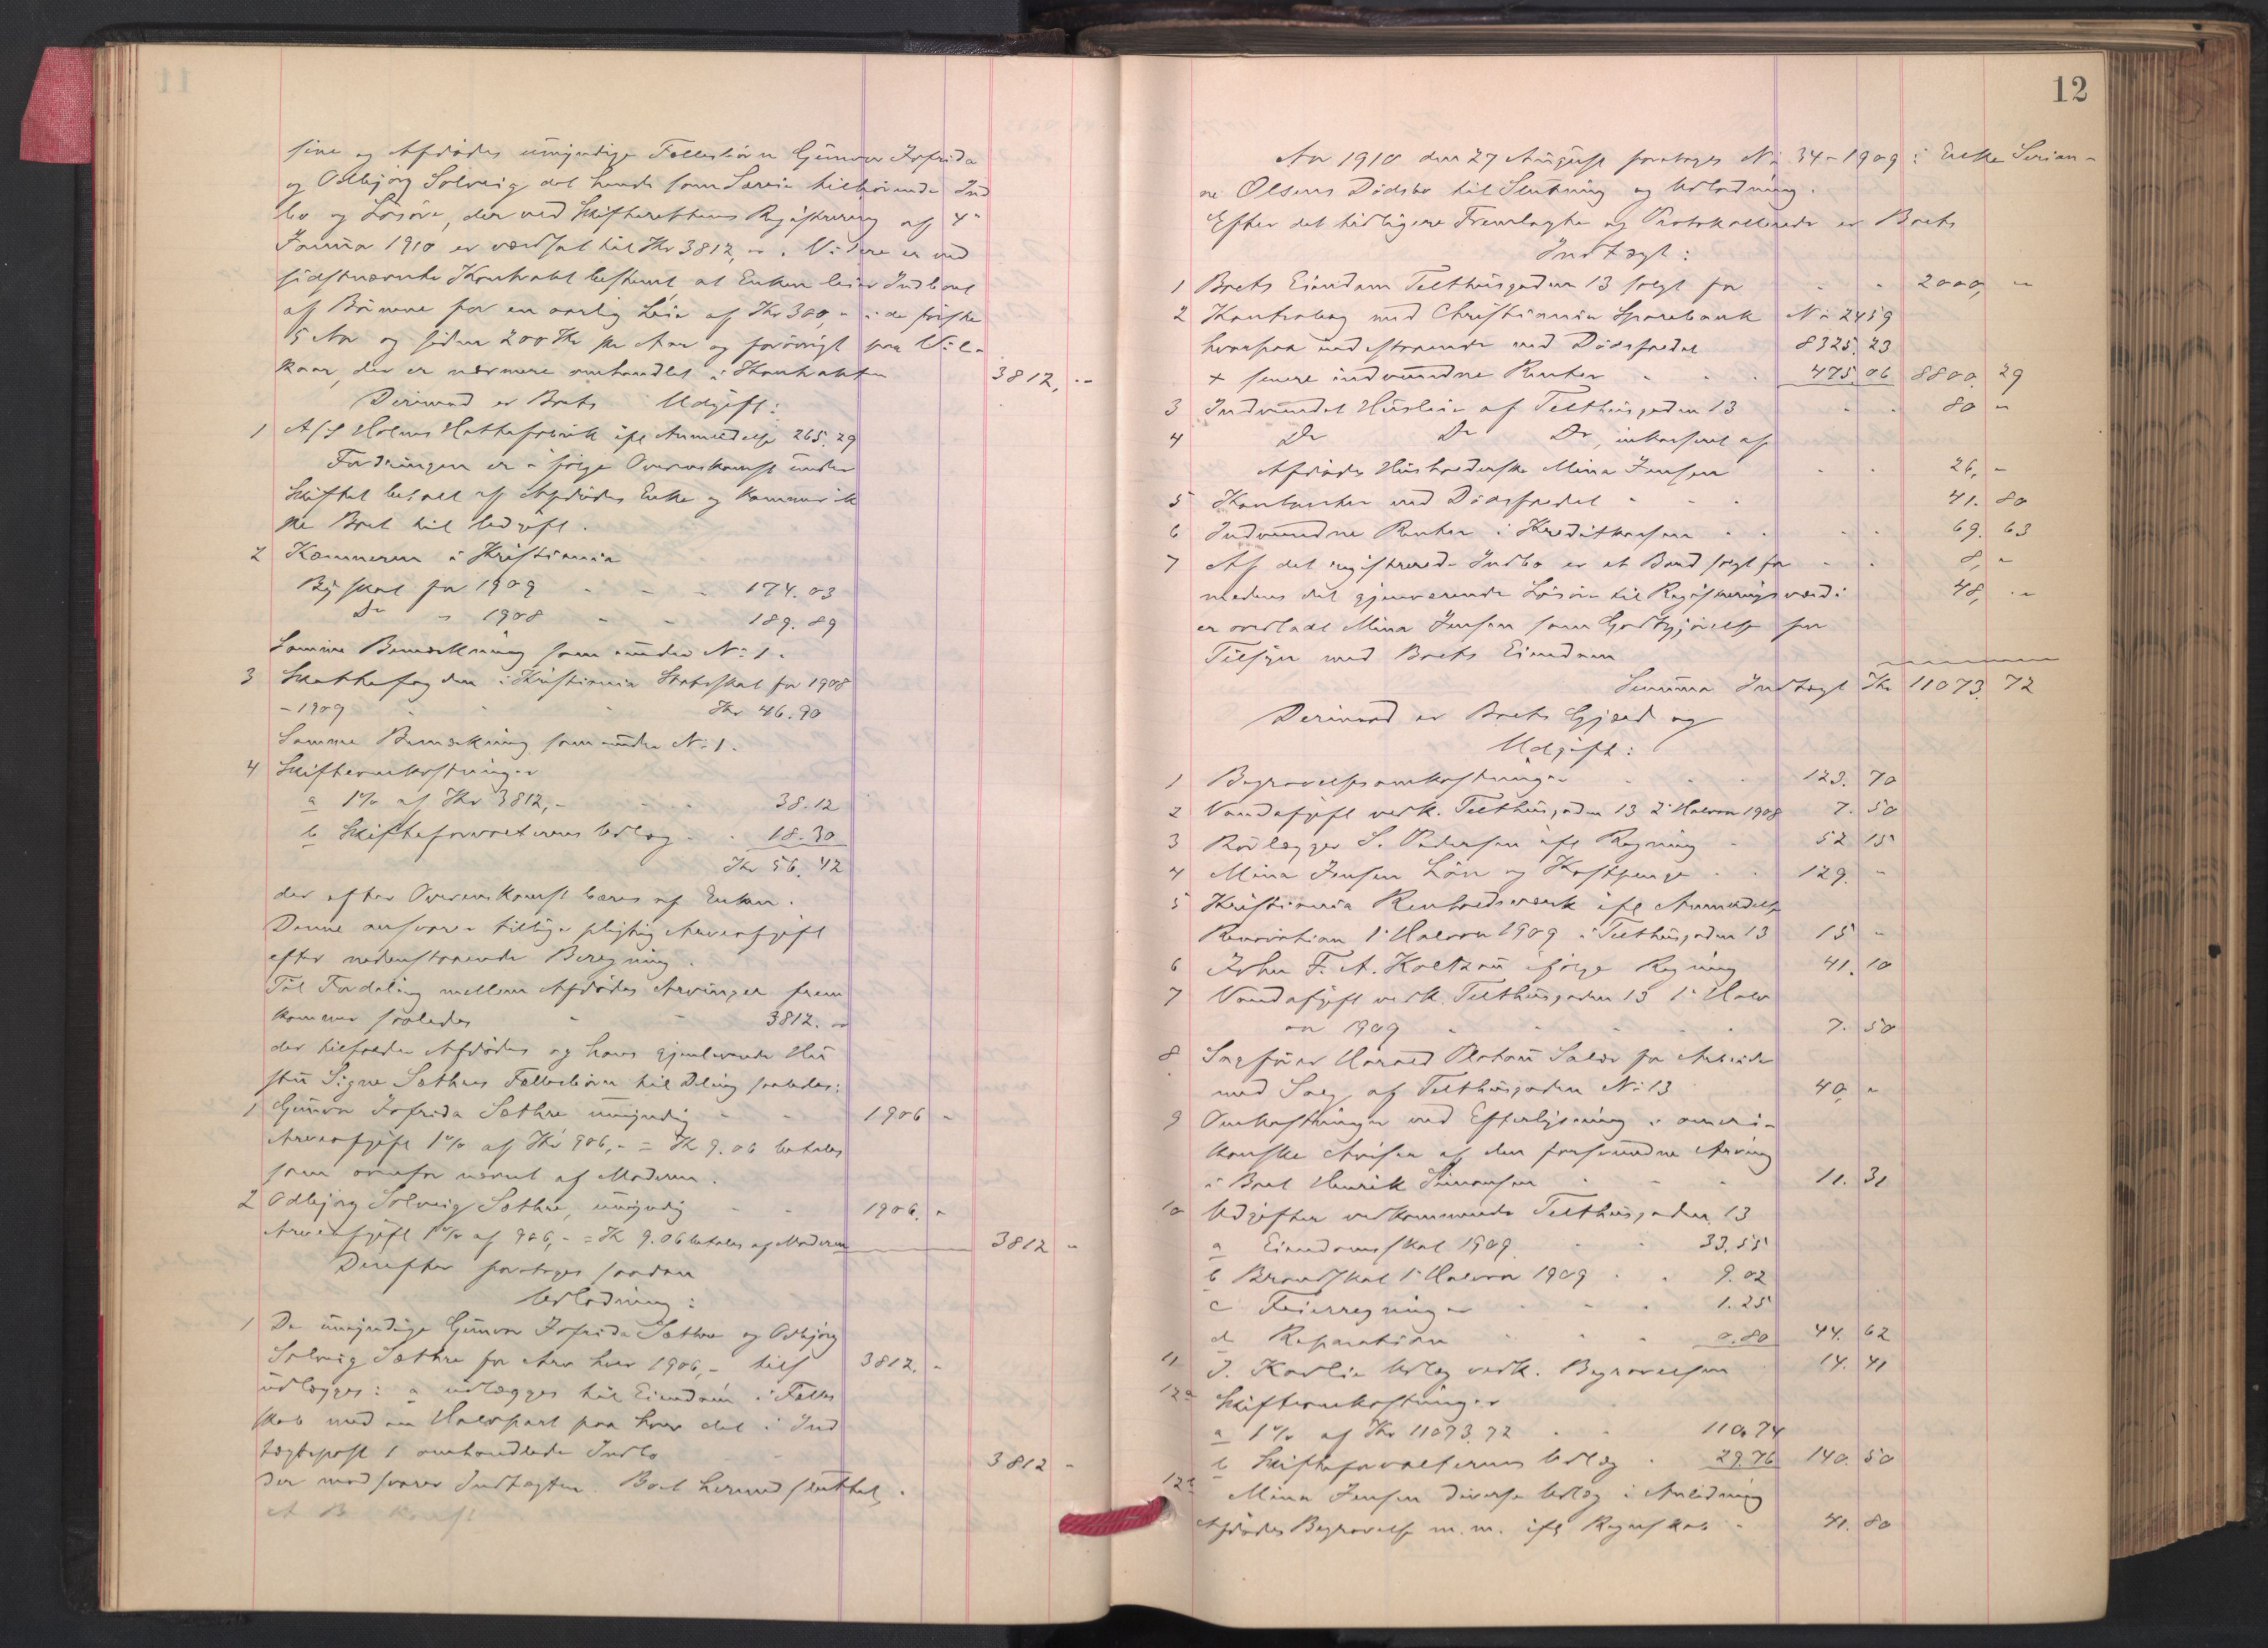 sine og Afdødes umyndige Fellesbörn Gunvor Jofrida
og Odbjorg Solveig det hende som Særeie tilhörende Ind
bo og Lösöre, der ved Skifterettens Registrering af 4'
Januar 1910 er værdsat til Kr 3812,-. Videre er ved
sidstnævnte Kontrakt bestemt at Enken leier Indboet
af Börnene for en aarlig Leie af Kr 300,- i de förste
5 Aar og siden 200 Kr pr Aar og forövrigt paa Vil-
kaar, der er nærmere omhandlet i Kontrakten 3812, --
Derimod er Boets Udgift:
1 A/S Holms Hattefabrik ifl Anmeldelse 265.29
Fordringen er i fölge Overenskomst under
Skiftet betalt af Afdödes Enke og kommer ik
ke Boet til Udgift.
2 Kæmneren i Kristiania
Byskat for 1909 - - - 174.03
Do " 1908 - - 189.89
Samme Bemærkning som under No 1.
3 Skattefogden i Kristiania Statsskat for 1908
-1909 - - - Kr 46.90
Samme Bemærkning som under No 1.
4 Skifteomkostninger
a 1% af Kr 3812,- - - 38.12
b Skifteforvalterens Udlæg - . 18.30
Kr 56.42
der efter Overenskomst bæres af Enken.
Denne ansvarer tillige pligtig Arveafgift
efter nedenstaaende Beregning.
Til Fordeling mellem Afdödes Arvinger frem
kommer saaledes - - 3812. -
der tilfalder Afdödes og hans gjenlevende Hu
stru Signe Sæthres Fellesbörn til Deling saaledes:
1 Gunvor Jofrida Sæthre umyndig - - 1906 -
Arveafgift 1% af Kr 906,- = Kr 9.06 betales
som ovenfor nævnt af Moderen.
2 Odbjorg Solveig Sæthre, umyndig - - 1906. -
Arveafgift 1% af 906,- = Kr 9.06 betales af Moderen 3812 -
Derefter foretages saadan
Udlodning:
1 De umyndige Gunvor Jofrida Sæthre og Odbjörg
Solveig Sæthre for Arv hver 1906,- tils 3812. -
udlægges: a udlægges til Eiendom i Felles
skab med en Halvpart paa hver det i Ind
tægtspost 1 omhandlede Indbo 3812 -
der modsvarer Indtægten. Boet hermed sluttet.
12
Aar 1910 den 27 August foretoges No 34-1909 i Enke Serian-
ne Olsens Dödsbo til Slutning og Udlodning.
Efter det tidligere Fremlagte og Protokollerede er Boets
Indtægt:
1 Boets Eiendom Telthusgaden 13 solgt for - - 2000, --
2 Kontrabog med Christiania Sparebank No 2459
hvorpaa indestaaende ved Dödsfaldet 8325.23
+ senere indvundne Renter - - - 475.06 8800. 29
3 Indvundet Husleie af Telthusgaden 13 - - 80 -
4 Do Do Do, inkasseret af
Afdödes Husholderske Mina Jensen - - 26, -
5 Kontanter ved Dödsfaldet - - - 41. 80
6 Indvundne Renter i Kreditkassen - - - - 69. 63
7 Af det registrerede Indbo er et Bord solgt for - - 8, -
medens det gjenværende Lösöre til Registreringsværdi 48, --
er overladt Mina Jensen som Godtgjörelse for
Tilsyn med Boets Eiendom
Summa Indtægt Kr 11073. 72
Derimod er Boets Gjæld og
Udgift:
1 Begravelsesomkostninger - - - 123. 70
2 Vandafgift vedk. Telthusgaden 13 2' Halvaar 1908 7. 50
3 Rörlægger S. Pedersen ifl Regning - 52 15
4 Mina Jensen Lön og Kostpenge - - 129. -
5 Kristiania Renholdsverk ifl Anmeldelse
Renovation 1' Halvaar 1909 i Telthusgaden 13 15 -
6 John F. A. Koltzau ifölge Regning 41. 10
7 Vandafgift vedk. Telthusgaden 13 1' Halv
aar 1909 - - - - - 7. 50
8 Sagförer Harald Platou Salær for Arbeide
med Salg af Telthusgaden No 13 40, -
9 Omkostninger ved Efterlysning i ameri-
kanske Aviser af den forsvundne Arving
i Boet Henrik Simonsen - - - 11. 31
10 Udgifter vedkommende Telthusgaden 13
a Eiendomsskat 1909 - - 33.55
b Brandskat 1' Halvaar 1909 - - 9.02
c Feierregninger - - - 1.25
d Reparation - - - 0.80 44. 62
11 J. Karlie Udlæg vedk. Begravelsen 14. 41
12a Skifteomkostninger
a 1% af Kr 11073.72 - - 110.74
b Skifteforvalterens Udlæg - 29.76 140. 50
12b Mina Jensen diverse Udlæg i Anledning
Afdödes Begravelse m. m. ifl Regnskab - 41. 80